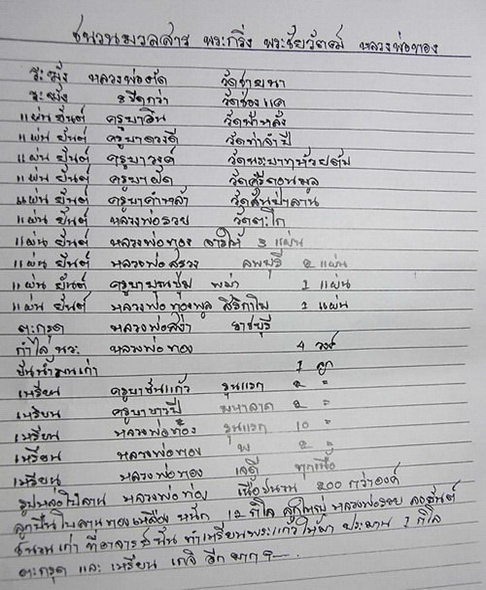 ชนวนมวลสาร พระกริ่ง พระชัยวัฒน์ หลวงพ่อทอง
ระฆัง หลวงพ่อตัด วัดชายนา
ระฆัง วัดช่องแค
แผ่นยันต์ ครูบาอิน วัดฟ้าหลั่ง
แผ่นยันต์ ครูบาดวงดี วัดท่าจำปี
แผ่นยันต์ ครูบาวงค์ วัดพระบาทห้วยต้ม
แผ่นยันต์ ครูบาผัด วัดศรีดอนมูล
แผ่นยันต์ ครูบาคำหล้า วัดสันป่าลาน
แผ่นยันต์ หลวงพ่อรวย วัดตะโก
แผ่นยันต์ หลวงพ่อทอง จารให้ 3 แผ่น
แผ่นยันต์ หลวงพ่อสรวง ลพบุรี 2 แผ่น
แผ่นยันต์ พม่า 1 แผ่น
แผ่นยันต์ หลวงพ่อทองพูล 1 แผ่น
ตะกรุด หลวงพ่อสง่า ราชบุรี
กำไล นวะ หลวงพ่อทอง 4 วง
ขันน้ำมนเก่า 1 ลูก
เหรียน ครูบาขันแก้ว รุ่นแรก 2 "
เหรียน ครูบาขาวปี มหาลาภ 2 "
เหรียน หลวงพ่อทอง รุ่นแรก 10 "
เหรียน หลวงพ่อทอง 2 "
เหรียน หลวงพ่อทอง เจดี ทุกเนื้อ
รูปหล่อ หลวงพ่อทอง เนื้อชนวน 200 กว่าองค์
ทองเหลือง หนัก 12 กิโล ลูกใหญ่ หลวงพ่อรวย ลงยันต์
ชนวนเก่า ที่อาจารย์ ทำเหรียนพระแก้ว ให้มา ประมาน 1 กิโล
ตะกรุด และ เหรียน เกจิ อีกมาก ๆ